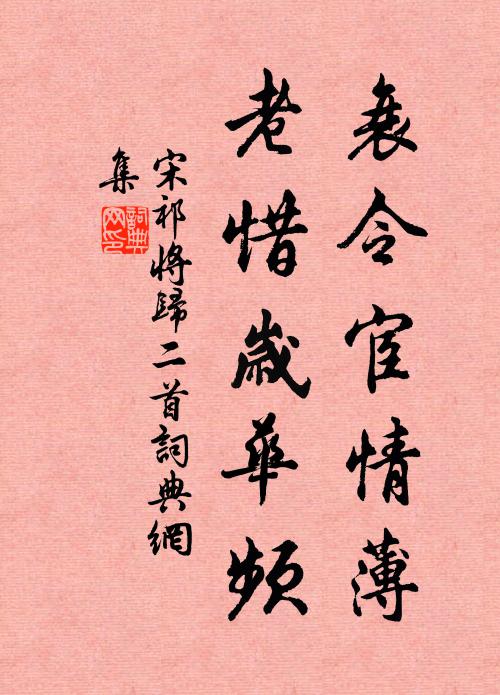 衰令宦情薄
老惜歲華頻
宋祁將歸二首詞典網
集
詞典網印